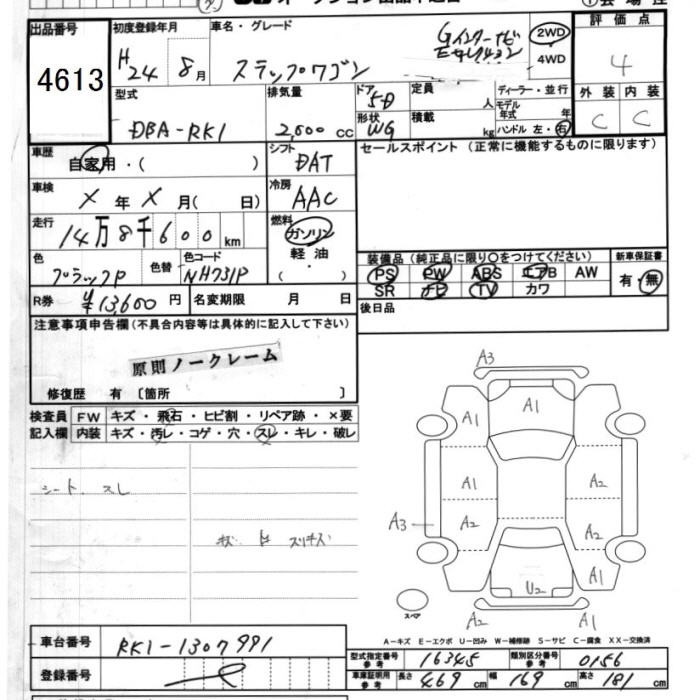 出品番号
4613
初度登録年月
H24 8月
車名・グレード
ステップワゴン
Gインターナビ
2WD
4WD
評価点
4
外装 内装
C C
型式
DBA-RK1
排気量
2,000 cc
ドア
5D
形状
WG
定員 人
積載 kg
ディーラー・並行
モデル年式 年
ハンドル 左・右
車歴
自家用・( )
シフト
DAT
セールスポイント (正常に機能するものに限ります)
車検
X 年 X 月( 日)
冷房
AAC
走行
14万8千600km
燃料
ガソリン
軽油
色
ブラックP
色替
色コード
NH731P
装備品 (純正品に限り〇をつけてください)
新車保証書
PS PW ABS エアB AW
SR ナビ TV カワ
有・無
R券 ¥13,600円
名変期限 月 日
後日品
注意事項申告欄 (不具合内容等は具体的に記入して下さい)
原則ノークレーム
修復歴 有 〔箇所 〕
検査員記入欄
FW キズ・飛石・ヒビ割・リペア跡・×要
内装 キズ・汚レ・コゲ・穴・スレ・キレ・破レ
シート スレ
スリキズ
A3
A1
A1 A1
A1 A2
A2 A2
A3
A1
U2
A2 A1
スペア
A-キズ E-エクボ U-凹み W-補修跡 S-サビ C-腐食 XX-交換済
車台番号
RK1-1307991
登録番号
型式指定番号 参考
16345
類別区分番号 参考
0156
車庫証明用 参考
長さ 469 cm
幅 169 cm
高さ 181 cm